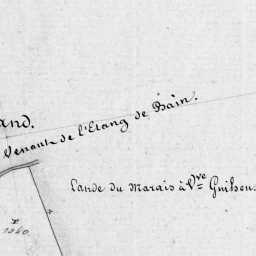 and.
Venant de l'Etang de Bain.
Lande du Marais à Vve
1340.